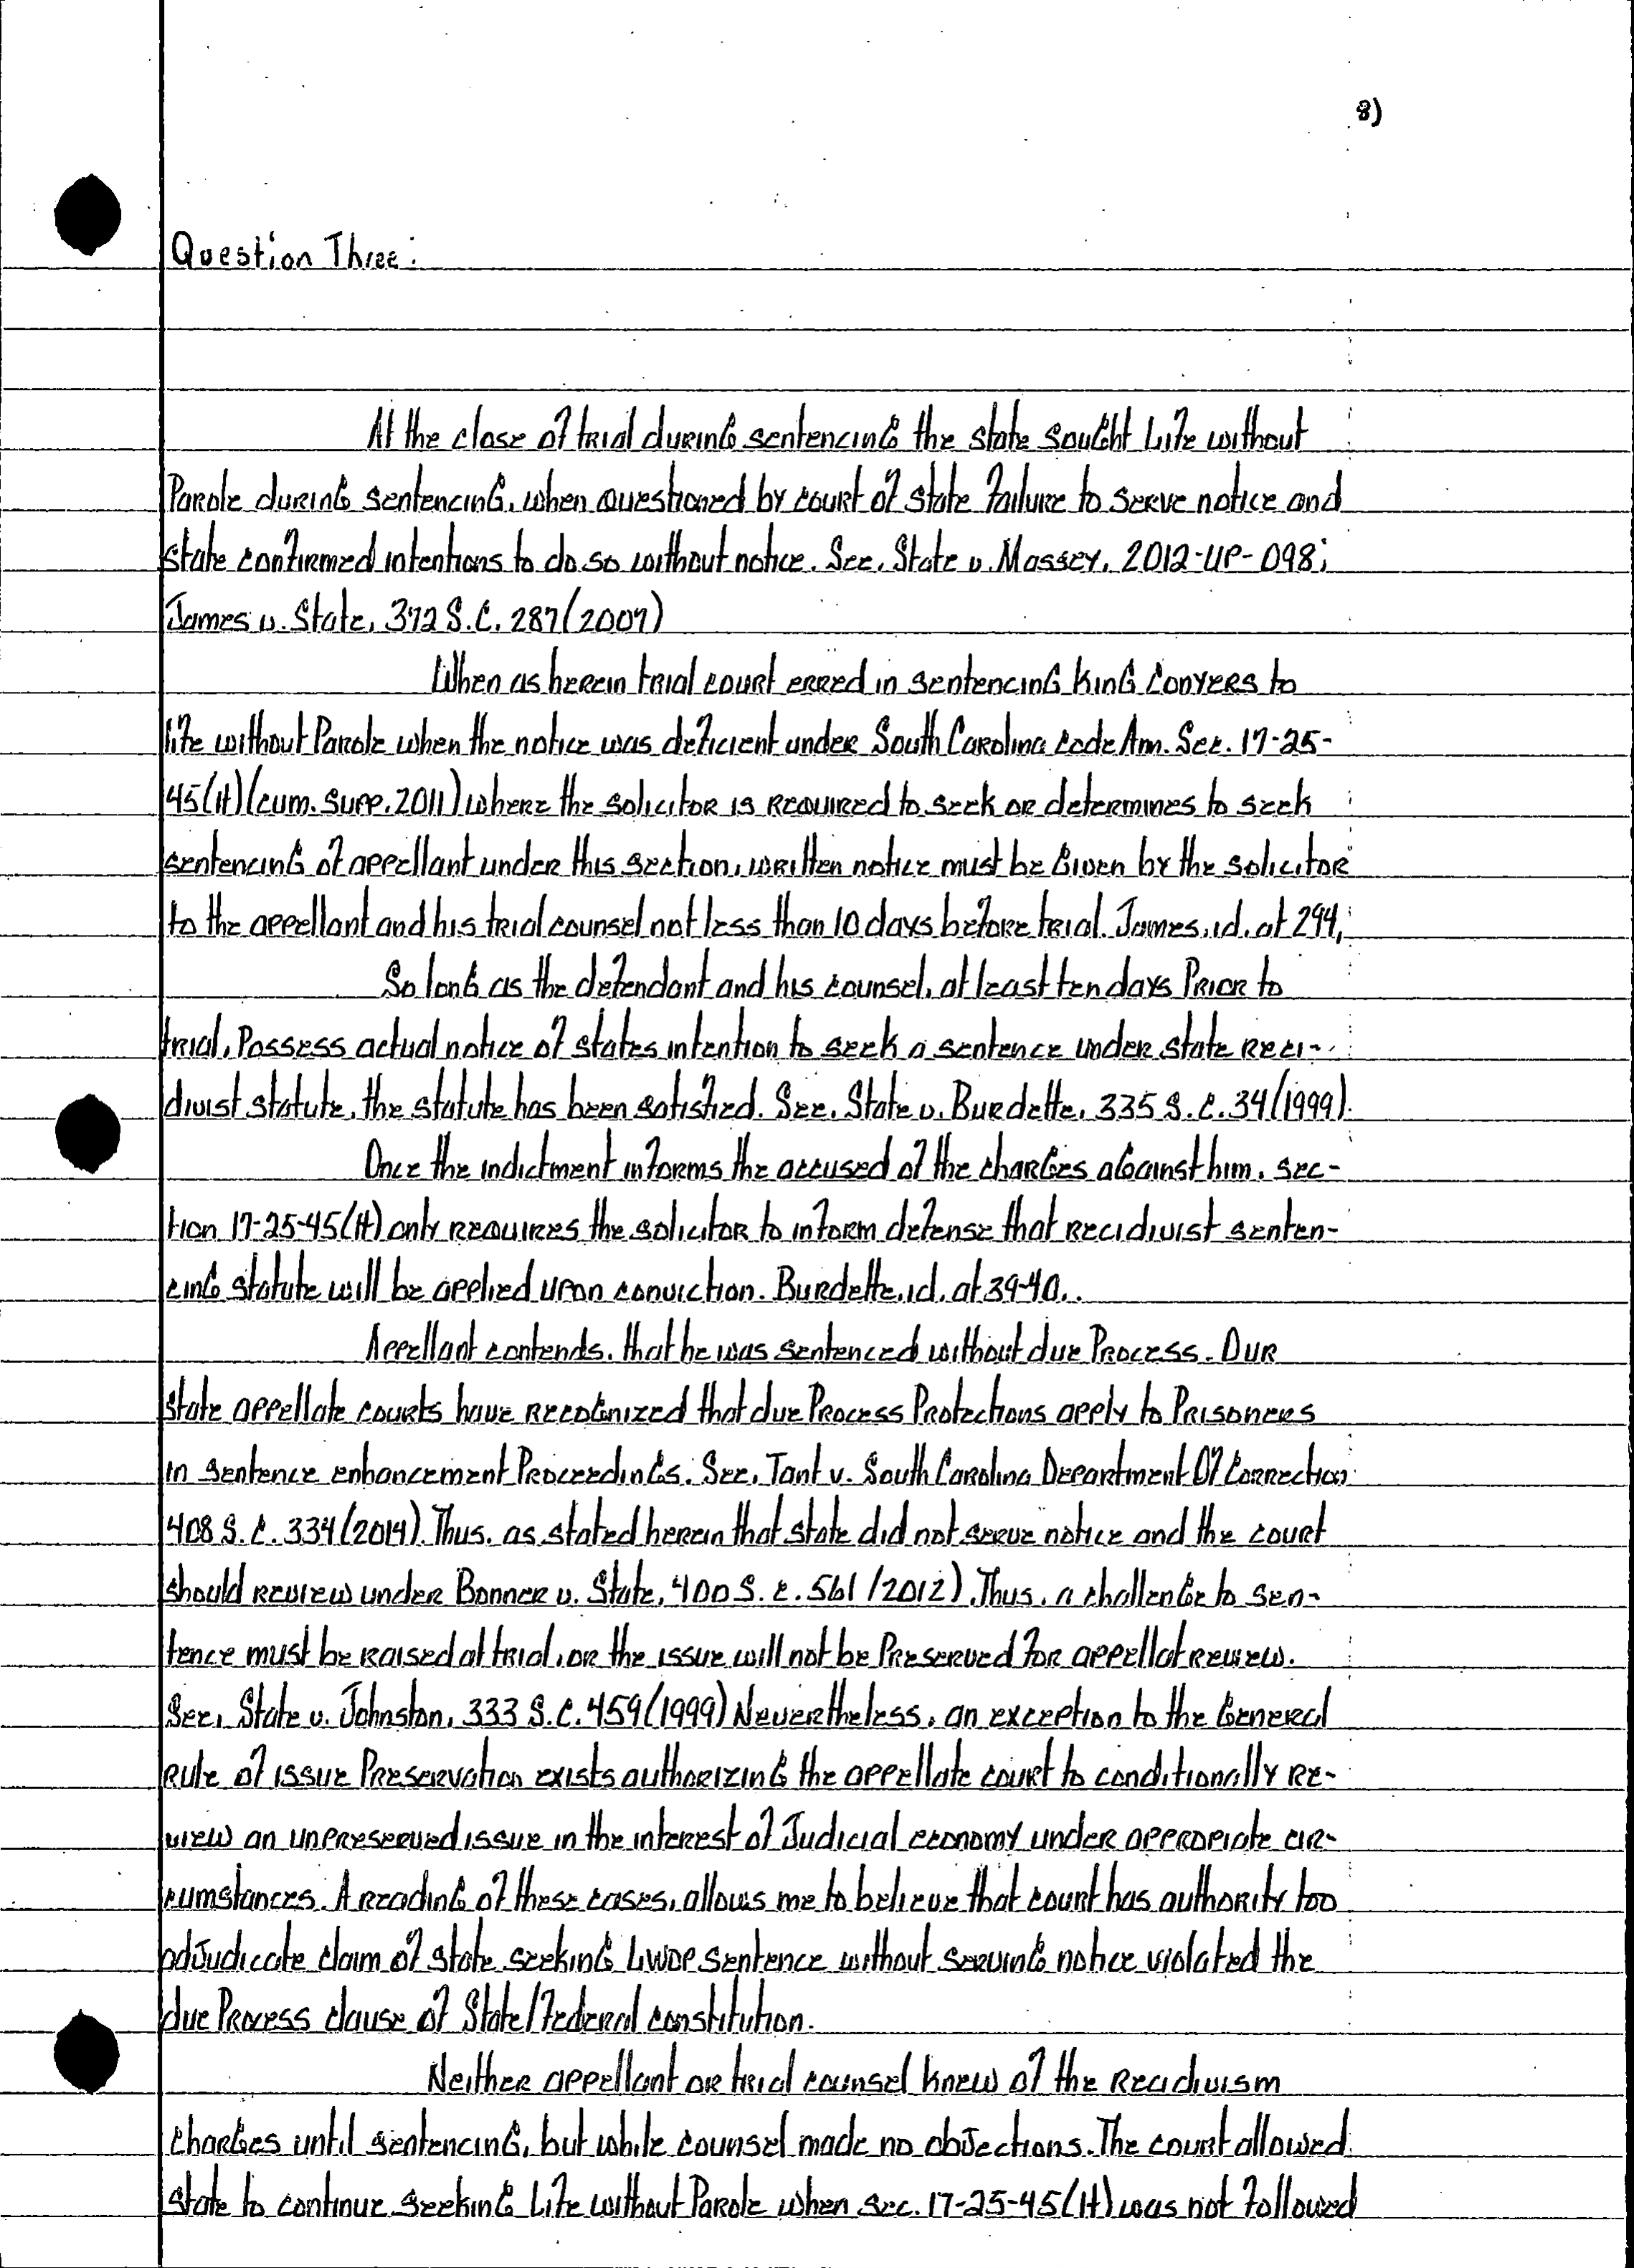 8)
Question Three:
At the close of trial during sentencing the state sought Life without
Parole during sentencing, when questioned by court of state failure to serve notice and
state confirmed intentions to do so without notice. See, State v. Massey, 2012-UP-098;
James v. State, 372 S.C. 287 (2007)
When as herein trial court erred in sentencing King Conyers to
life without Parole when the notice was deficient under South Carolina Code Am. Sec. 17-25-
45(H) (cum. supp. 2011) where the solicitor is required to seek or determines to seek
sentencing of appellant under this section, written notice must be given by the solicitor
to the appellant and his trial counsel not less than 10 days before trial. James, id. at 294,
So long as the defendant and his counsel, at least ten days prior to
trial, Possess actual notice of states intention to seek a sentence under state reci-
divist statute, the statute has been satisfied. See, State v. Burdette, 335 S.C. 34 (1999).
Once the indictment informs the accused of the charges against him, sec-
tion 17-25-45(H) only requires the solicitor to inform defense that recidivist senten-
cing statute will be applied upon conviction. Burdette, id. at 39-40..
Appellant contends, that he was sentenced without due Process. Our
state appellate courts have recognized that due Process Protections apply to Prisoners
in sentence enhancement Proceedings. See, Tant v. South Carolina Department Of Correction
408 S.C. 334 (2014). Thus, as stated herein that state did not serve notice and the court
should review under Bonner v. State, 400 S.C. 561 /2012). Thus, a challenge to sen-
tence must be raised at trial, or the issue will not be Preserved for appellat review.
See, State v. Johnston, 333 S.C. 459 (1999) Nevertheless, an exception to the General
rule of issue Preservation exists authorizing the appellate court to conditionally re-
view an unpreserved issue in the interest of Judicial economy under appropiate cir-
cumstances. A reading of these cases, allows me to believe that court has authority too
adjudicate claim of state seeking LWOP sentence without serving notice violated the
due Process clause of State/Federal constitution.
Neither appellant or trial counsel knew of the Recidivism
charges until sentencing, but while counsel made no objections. The court allowed
state to continue seeking Life without Parole when sec. 17-25-45(H) was not followed